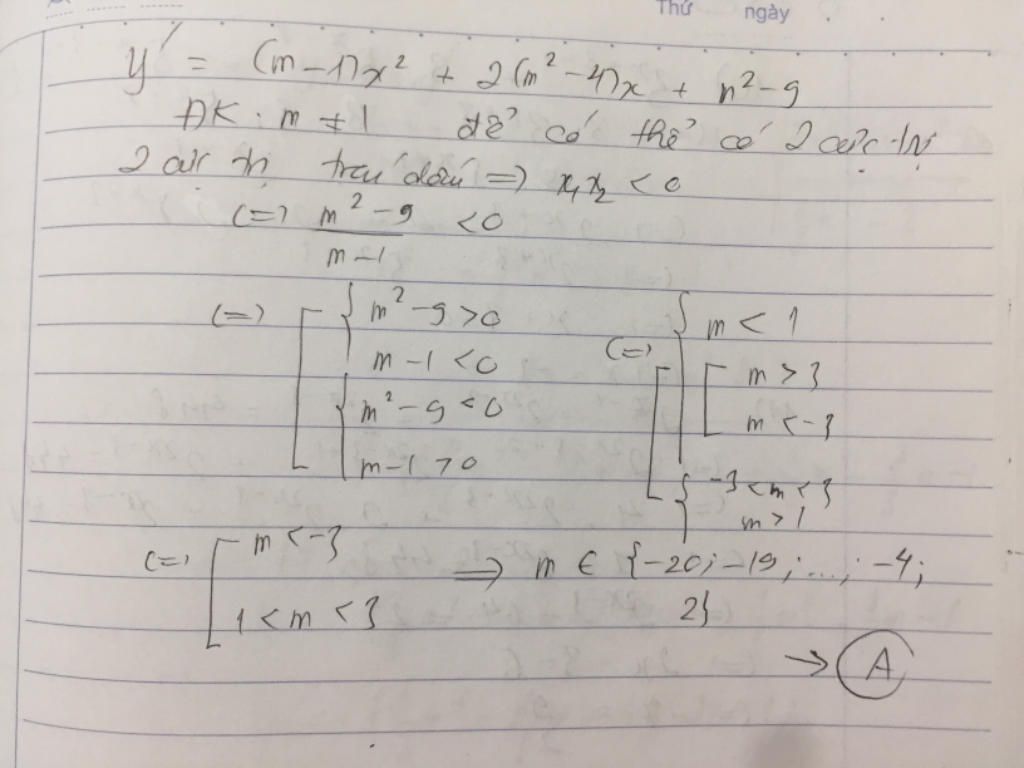 Thứ ngày
y' = (m-1)x² + 2(m²-4)x + m²-9
ĐK: m ≠ 1 để có thể có 2 cực trị
2 cực trị trái dấu => x₁x₂ < 0
(=) m²-9 / m-1 < 0
(=) [ { m²-9 > 0 (=) [ { m < 1
m-1 < 0 [ m > 3
{ m²-9 < 0 m < -3
m-1 > 0 { -3 < m < 3
m > 1
(=) [ m < -3 => m ∈ {-20; -19; ...; -4;
1 < m < 3 2}
→ A